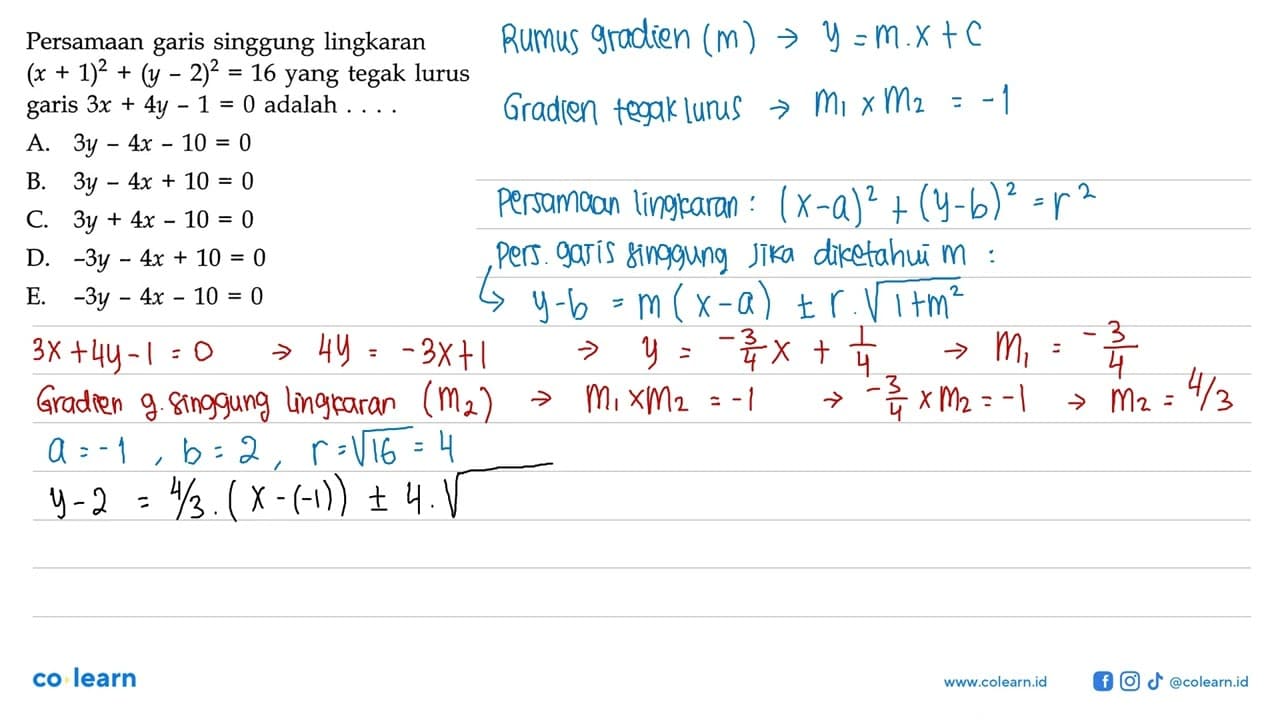 Persamaan garis singgung lingkaran
(x + 1)² + (y − 2)² = 16 yang tegak lurus
garis 3x + 4y − 1 = 0 adalah . . . .
A. 3y − 4x − 10 = 0
B. 3y − 4x + 10 = 0
C. 3y + 4x − 10 = 0
D. −3y − 4x + 10 = 0
E. −3y − 4x − 10 = 0
Rumus gradien (m) → y = m.x + c
Gradien tegak lurus → m₁ × m₂ = -1
Persamaan lingkaran : (x-a)² + (y-b)² = r²
Pers. garis singgung jika diketahui m :
↳ y-b = m(x-a) ± r.√1+m²
3x+4y-1 = 0 → 4y = -3x+1 → y = -3/4 x + 1/4 → m₁ = -3/4
Gradien g. singgung lingkaran (m₂) → m₁ × m₂ = -1 → -3/4 × m₂ = -1 → m₂ = 4/3
a = -1 , b = 2 , r = √16 = 4
y-2 = 4/3 . (x-(-1)) ± 4.√
co learn
www.colearn.id
@colearn.id